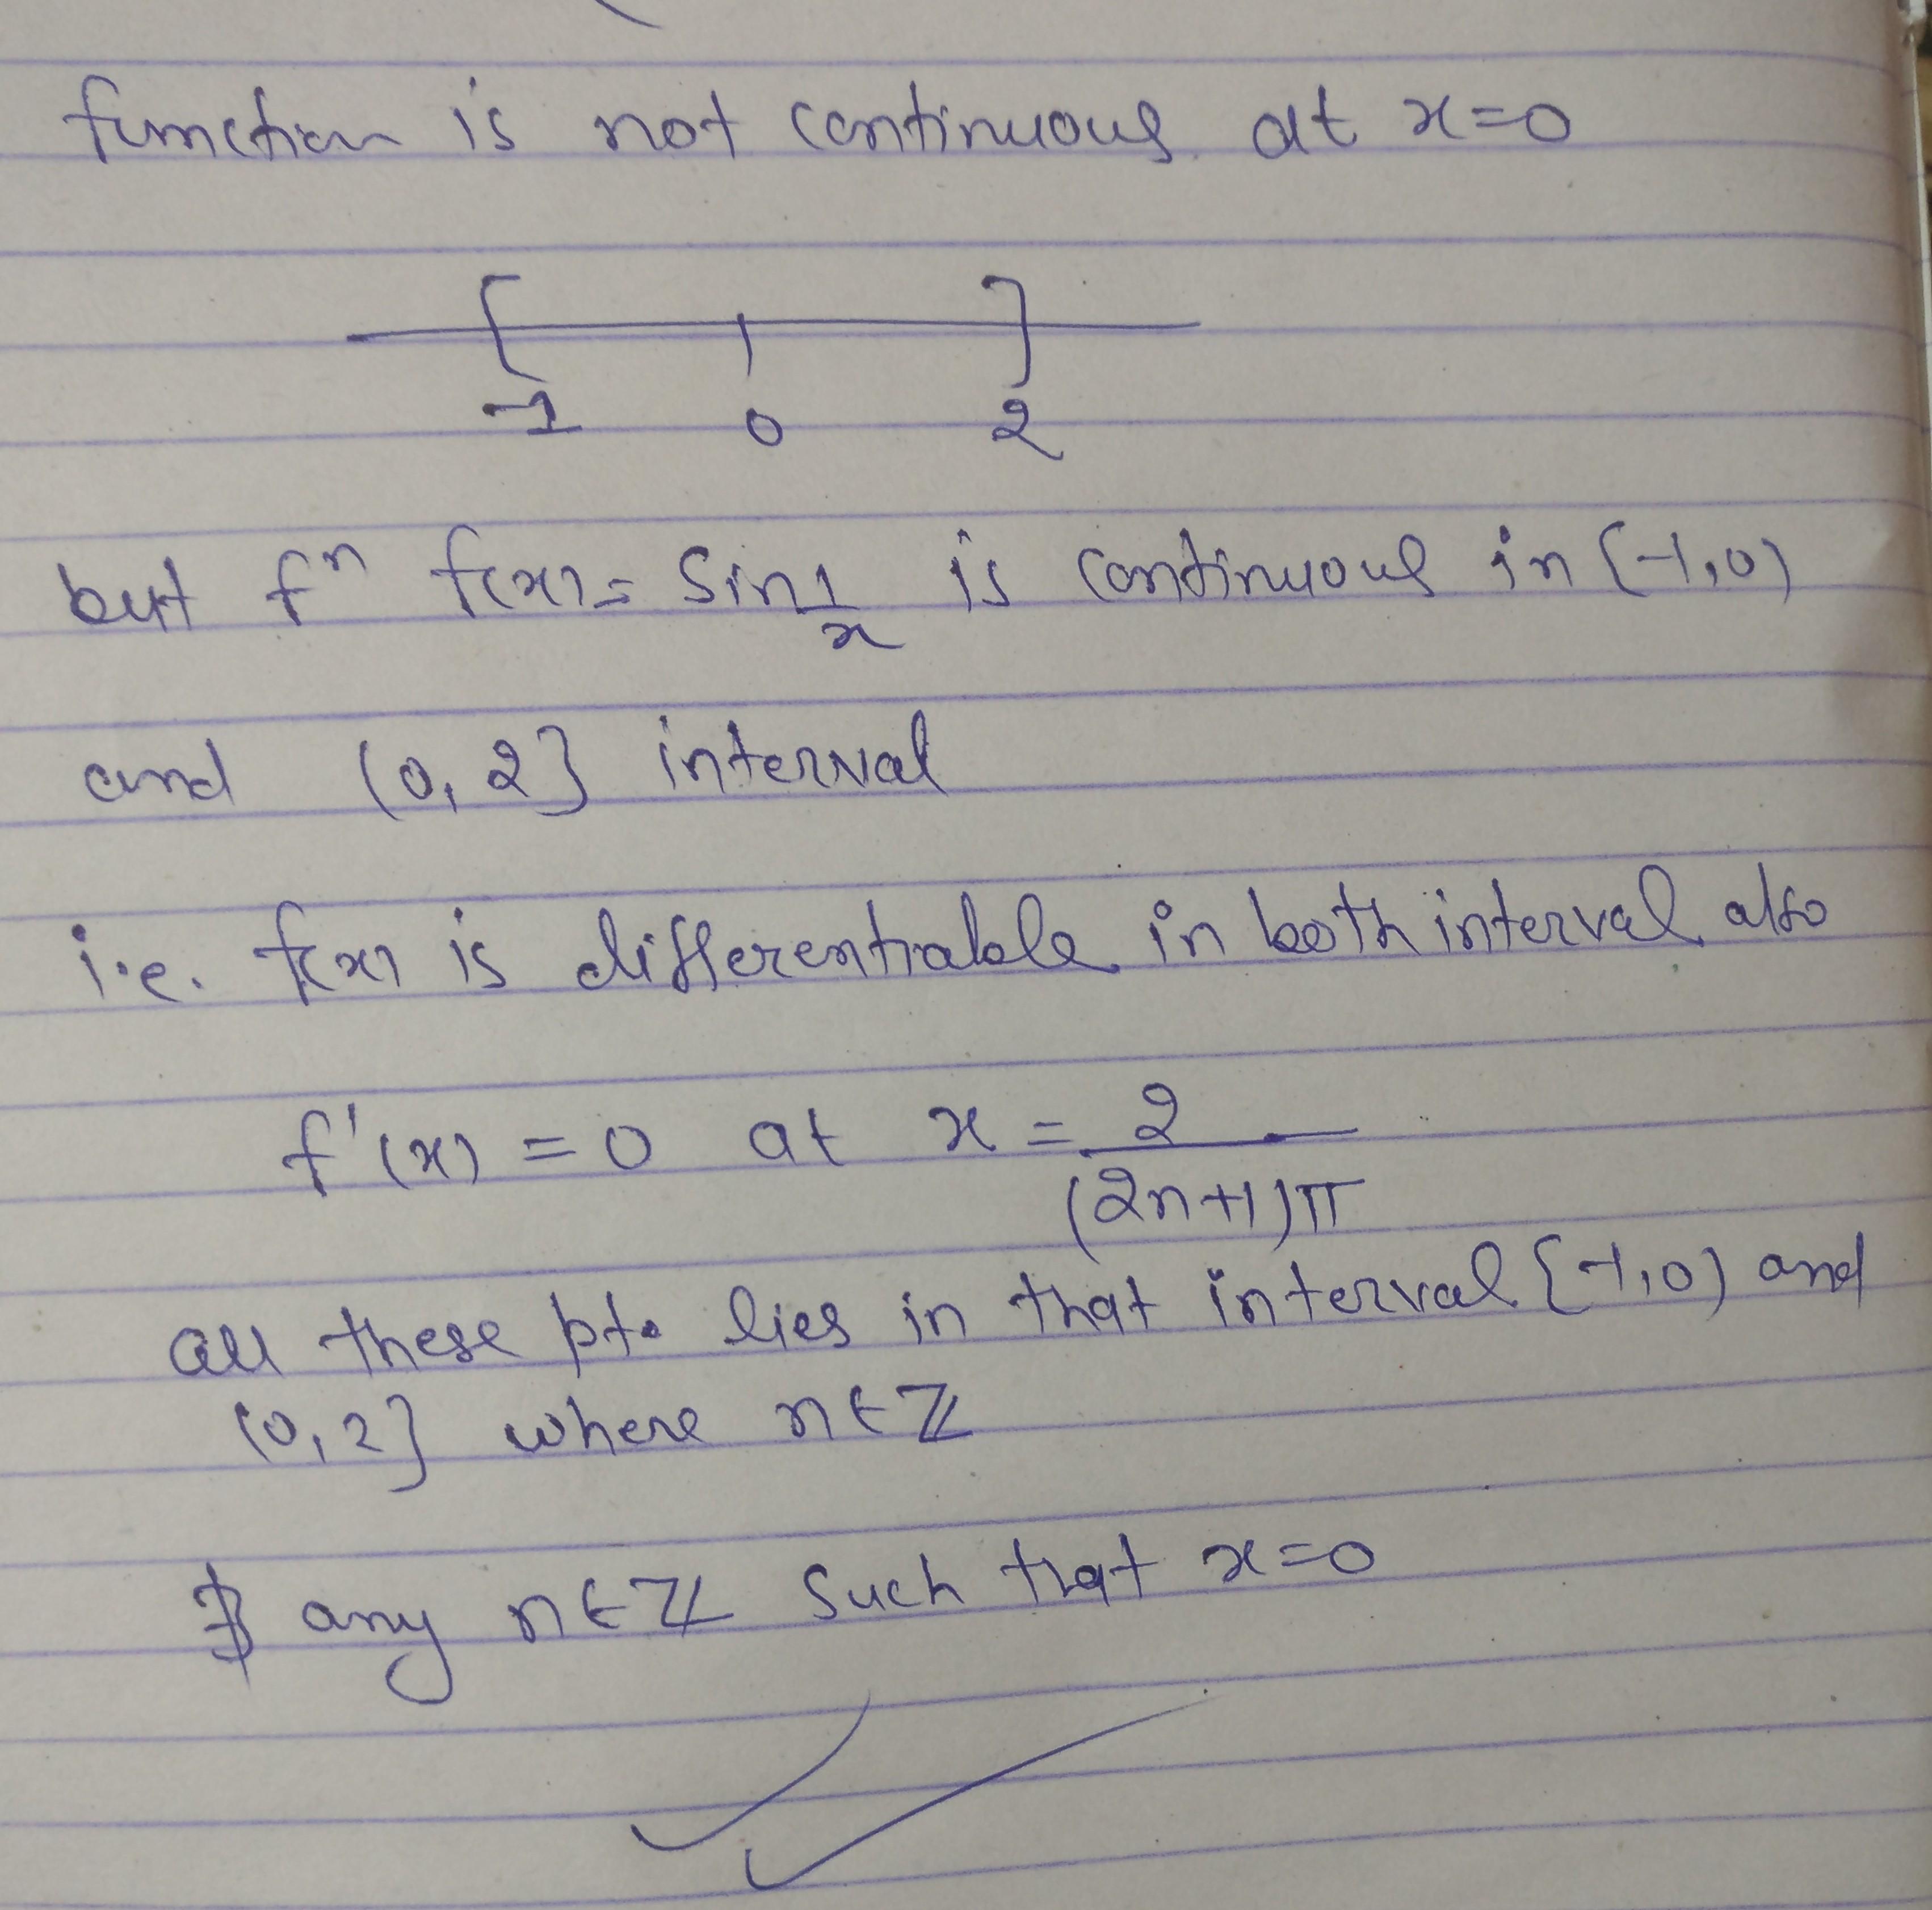 function is not continuous at x=0
-1 0 2
but fⁿ f(x) = Sin 1/x is continuous in [-1,0)
and (0,2] interval
i.e. f(x) is differentiable in both interval also
f'(x) = 0 at x = 2/(2n+1)π
all these pts lies in that interval [-1,0) and
(0,2] where n∈ℤ
∄ any n∈ℤ such that x=0